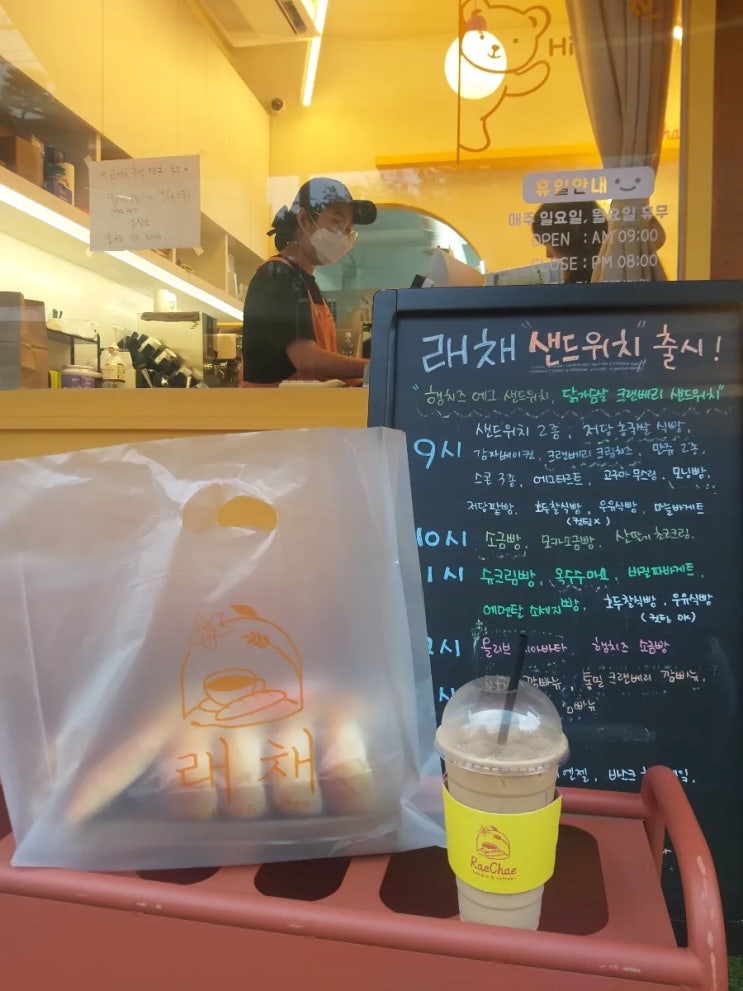 Hi
휴일안내
매주 일요일, 월요일 휴무
OPEN : AM 09:00
CLOSE : PM 08:00
래채 "샌드위치" 출시!
"햄치즈 에그 샌드위치, 닭가슴살 크랜베리 샌드위치"
9시
샌드위치 2종, 저당 통국쌀 식빵
감자베이컨, 크랜베리 크림치즈, 만쥬 2종
스콘 3종, 에그타르트, 고구마 무스링, 모닝빵
저당팥빵, 호두찰식빵, 우유식빵, 마늘바게트
(컷팅 X)
10시 소금빵, 모카소금빵, 산딸기 초코크림,
1시 슈크림빵, 옥수수마요, 바질파바게트,
에멘탈 소세지빵, 호두찰식빵, 우유식빵
(컷팅 OK)
2시 올리브 치아바타, 햄치즈 소금빵
깜빠뉴, 통밀 크랜베리 깜빠뉴,
깜빠뉴
래채
RaeChae
bakery & coffee